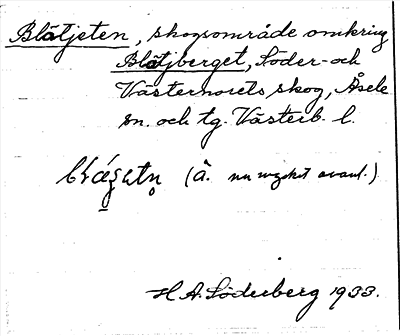 Blåtjeten, skogsområde omkring
Blåtjberget, Söder- och
Västernorets skog, Åsele
sn. och tg. Västerb. l.
(å. nu mycket ovanl.)
H. A. Söderberg 1933.